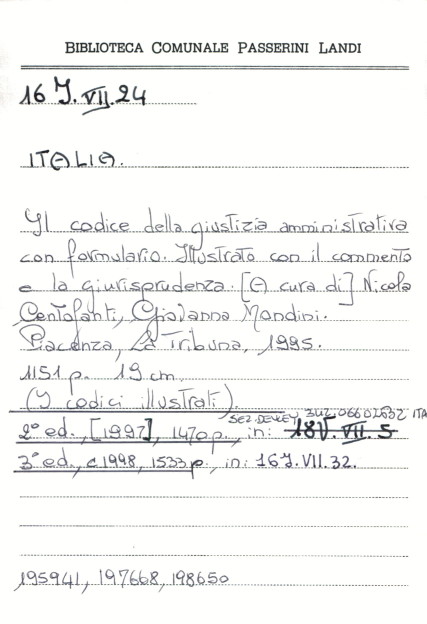 BIBLIOTECA COMUNALE PASSERINI LANDI
16 J. VII. 24
ITALIA.
Il codice della giustizia amministrativa
con formulario. Illustrato con il commento
e la giurisprudenza. [A cura di] Nicola
Centofanti, Giovanna Mandini.
Piacenza, La Tribuna, 1995.
1151 p. 19 cm.
(I codici illustrati).
SEZ. DEWEY 342.06602632 ITA
2ª ed., [1997], 1470 p., in: 18V. VII. 5
3ª ed., c1998, 1533 p., in: 16 J. VII. 32.
195941, 197668, 198650